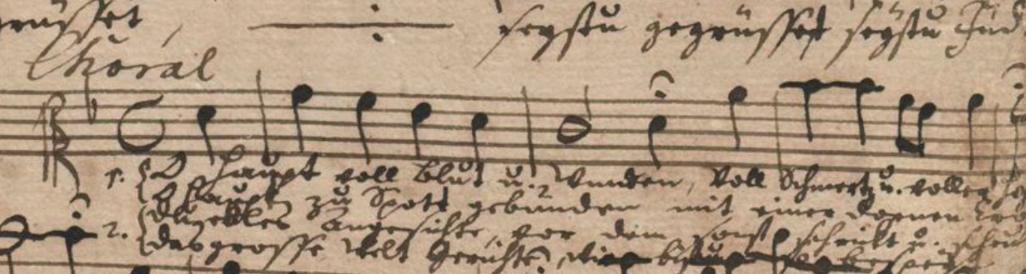 grüsset, seystu gegrüsset seystu Jüd
Choral
1. O Haupt voll blut u. Wunden, voll Schmertz u. voller
O Haupt zu Spott gebunden mit einer Dornen
2. du edles Angesichte, vor dem sonst schrickt u. scheu
das grosse Welt Gerichte, wie